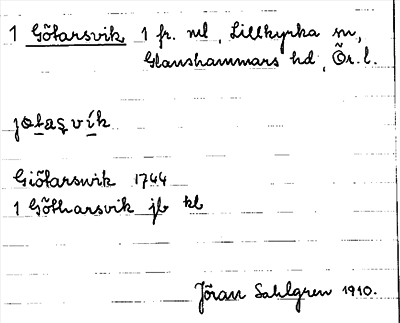 1 Götarsvik 1 fr. ml, Lillkyrka sn,
Glanshammars hd, Ör. l.
jøtaşvík
Giötarswik 1744
1 Götharsvik jb kb
Jöran Sahlgren 1910.